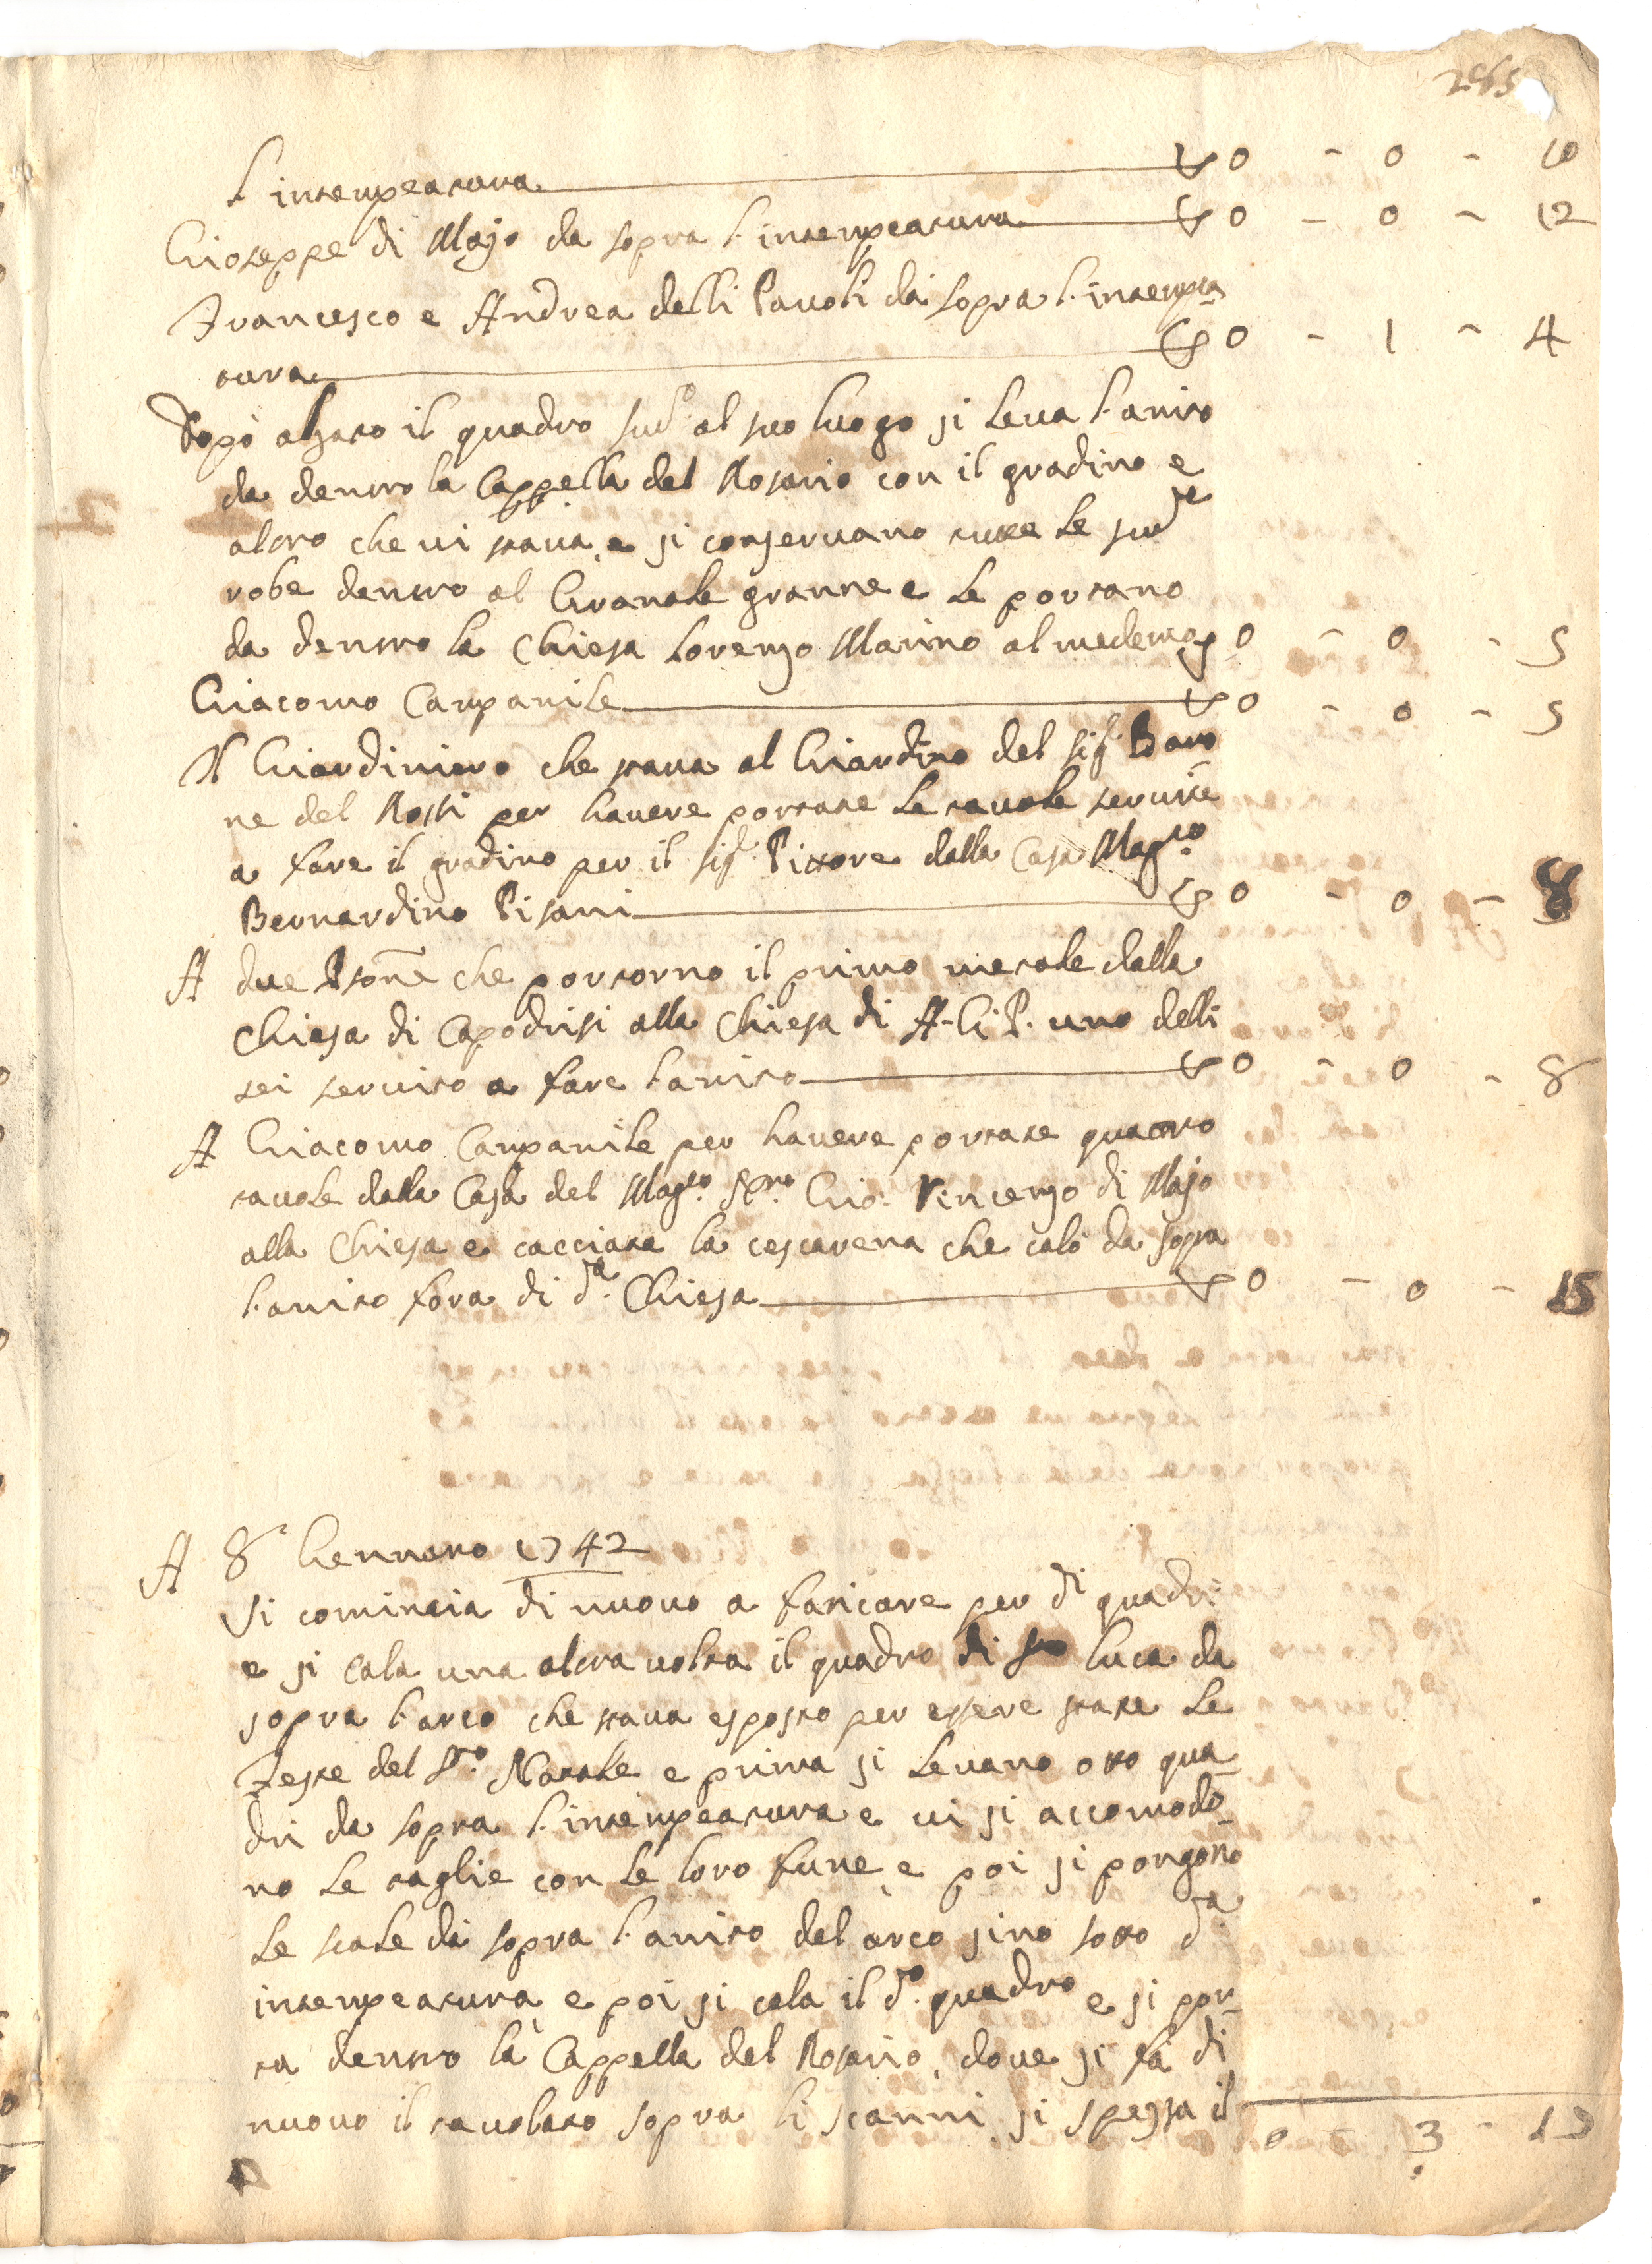 265
l'intempeatura — 0 - 0 - 10
Gioseppe di Majo da sopra l'intempeatura — 0 - 0 - 12
Francesco e Andrea delli Pauoli da sopra l'intempea
tura — 0 - 1 - 4
Dopò alzato il quadro sud.o al suo luogo si leua l'anito
da dentro la Cappella del Rosario con il gradino e
altro che ui staua, e si conseruano tutte le sud.e
robe dentro al Granale granne e le portano
da dentro la Chiesa Lorenzo Marino al medemo, 0 - 0 - 5
Giacomo Campanile — 0 - 0 - 5
Il Giardiniero che staua al Giardino del Sig.r Baro
ne del Rossi per hauere portate le tauole seruite
a fare il gradino per il Sig.r Pittore dalla Casa Mag.co
Bernardino Pisani — 0 - 0 - 8
A due Psone che portorno il primo metale dalla
Chiesa di Capodrisi alla Chiesa di A.G.P. uno delli
sei seruito a fare l'anito — 0 - 0 - 8
A Giacomo Campanile per hauere portate quattro
tauole dalla Casa del Mag.co Gio: Vincenzo di Majo
alla Chiesa e cacciata la cescarena che calò da sopra
l'anito fora di d.a Chiesa — 0 - 0 - 15
A 8 Gennaro 1742
Si comincia di nuouo a faticare per d.i quadri
e si cala una altra uolta il quadro di Luca da
sopra l'arco che staua esposto per essere state le
Feste del S.to Natale e prima si leuano otto qua
dri da sopra l'intempeatura e ui si accomodo-
no le taglie con le loro fune, e poi si pongono
le scale da sopra l'anito del arco sino sotto d.a
intempeatura e poi si cala il d.o quadro e si por-
ta dentro la Cappella del Rosario, doue si fà di
nuouo il tauolato sopra li scanni si spezza il
0 - 3 - 13